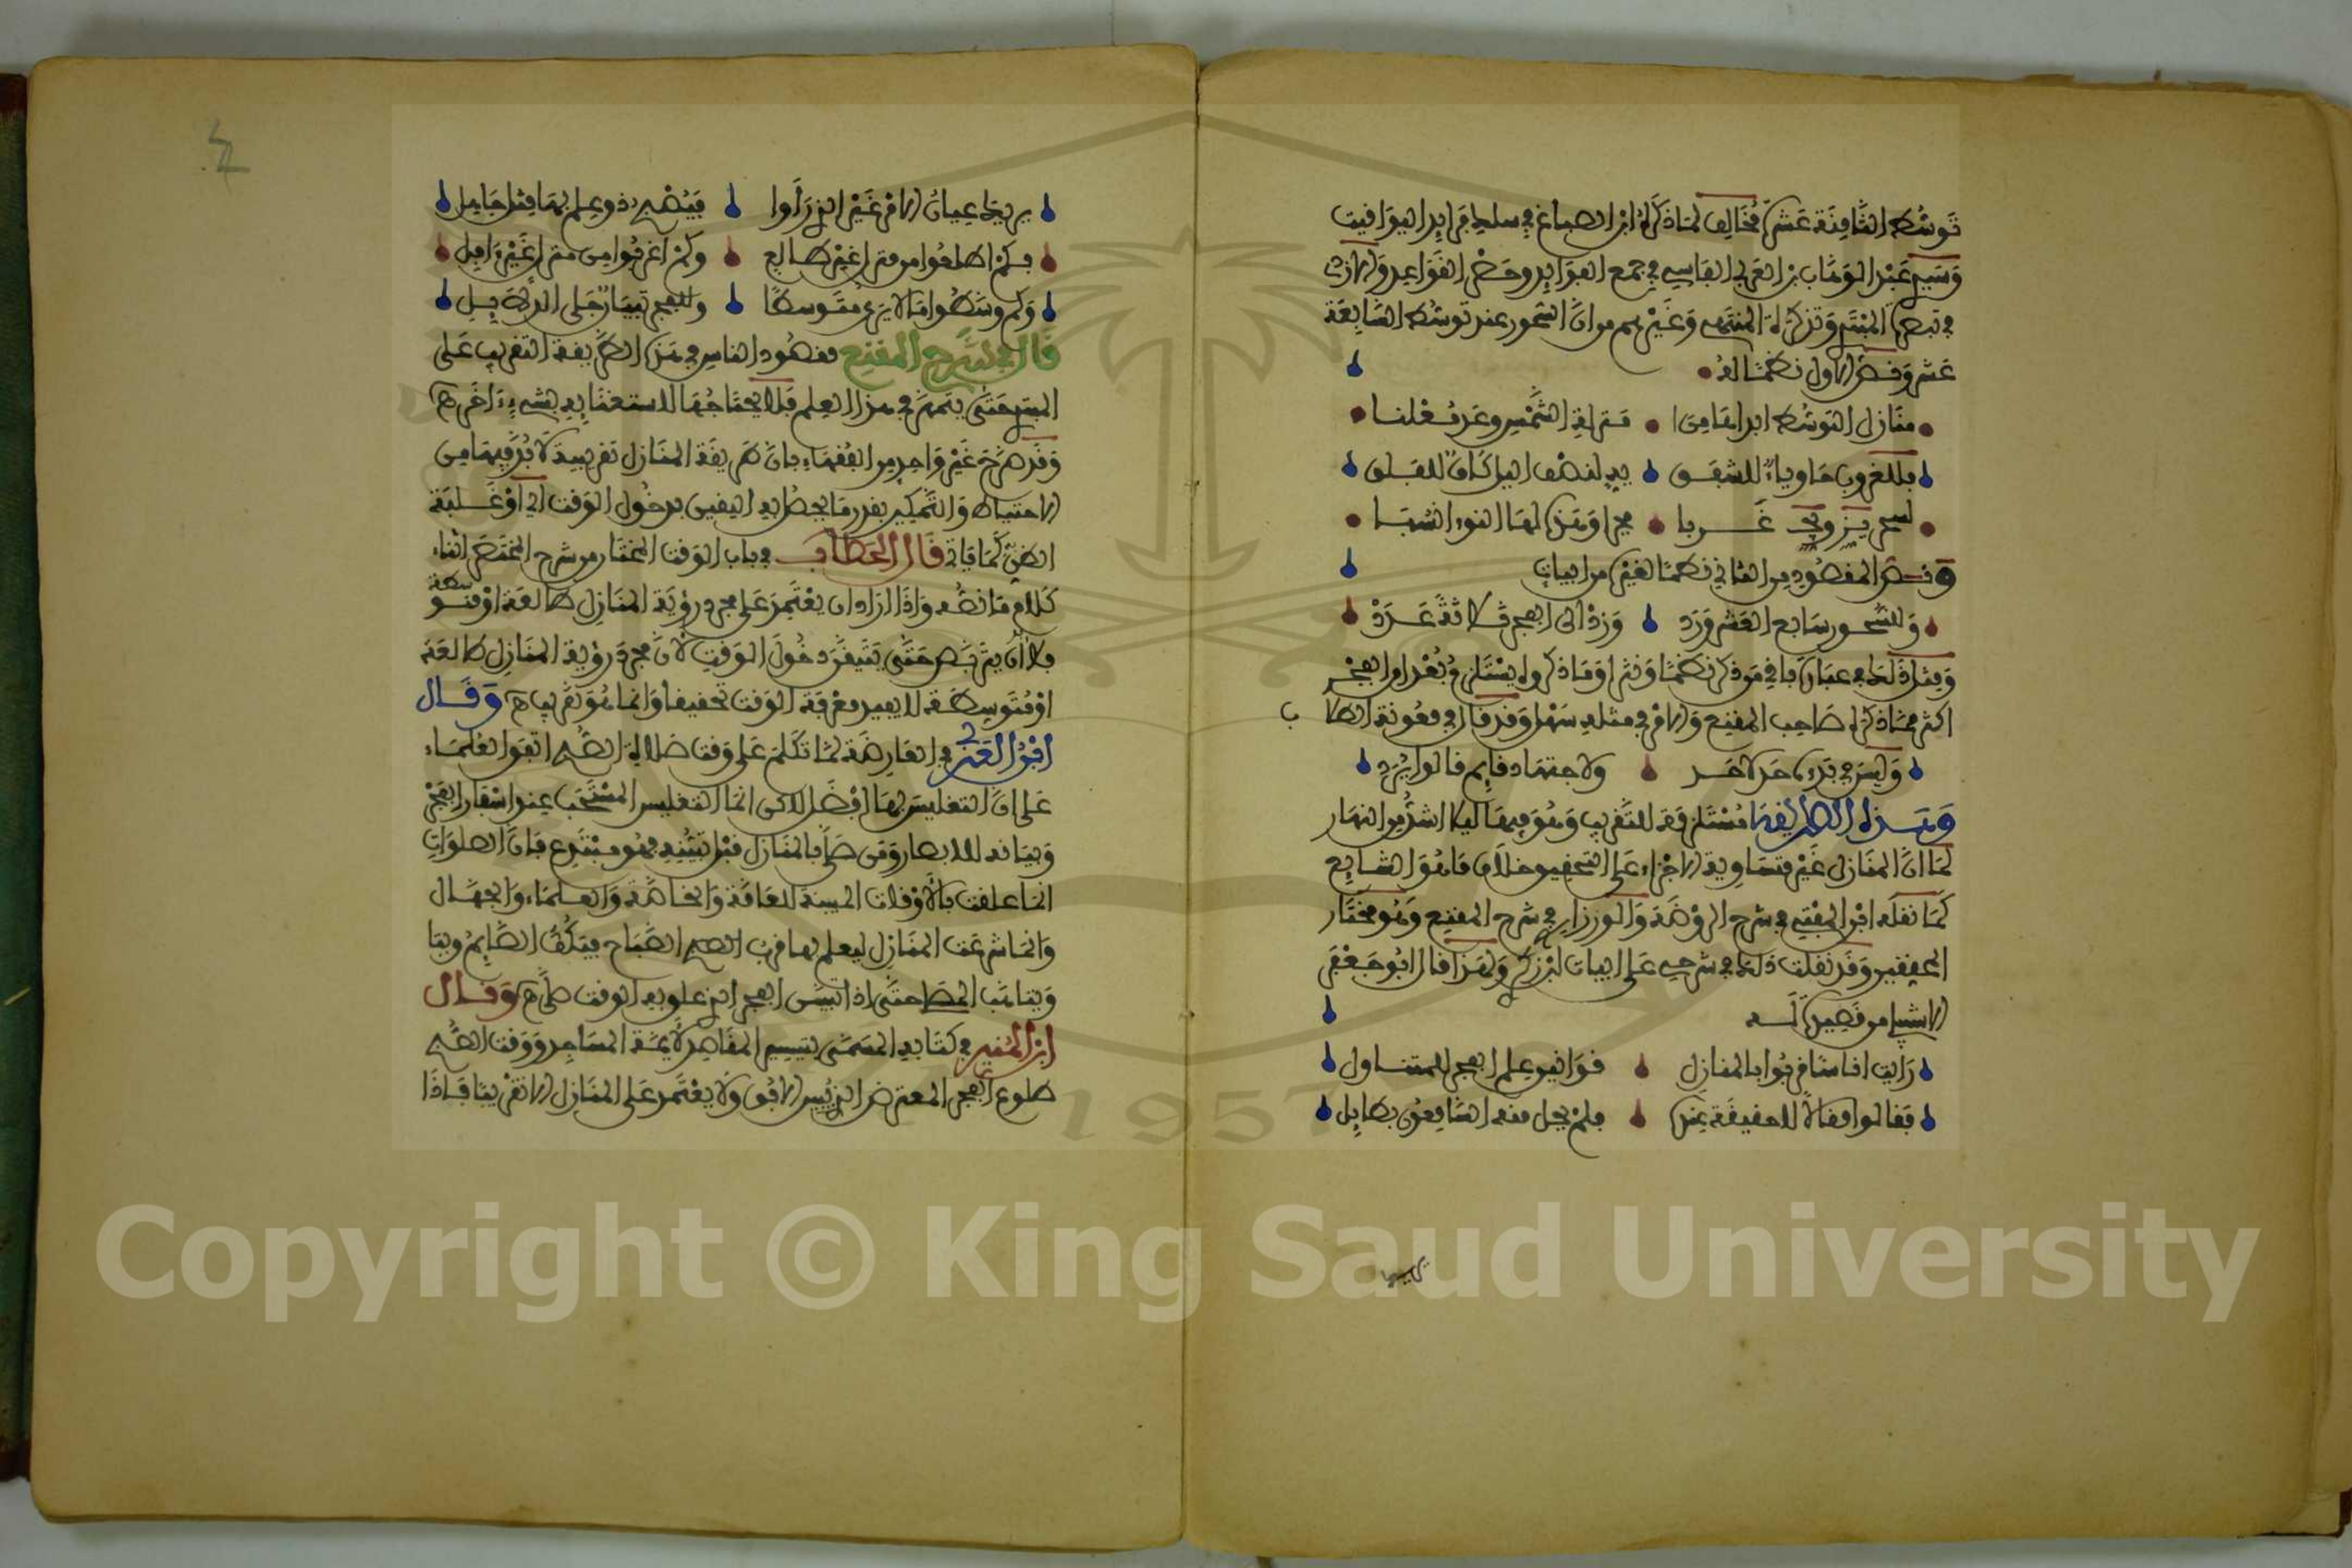 توسط الثامنة عشر مخالف لما ذكره ابن الصباغ في سلك فرايد اليواقيت
وسيدي عبد الوهاب بن العربي الفاسي في جمع الفوايد وحض القواعد والازدي
في تبصرة المبتدي وتذكرة المنتهي وغيرهم من ان السحور عند توسط السابعة
عشر ونص الاول نظما له
منازل التوسط ابدا من منزلة الشمس وعد فعلنا
وللغروب حاويا للشفق يد لنصف اليل كان للغلق
لسحر يز غربا
ونص المقصود من الثاني نظما لغيره من ابيات
وللسحور سابع العشر ورد وزد الى الفجر ثلاثة عدد
ومثل ذلك في عبارة باقي من ذكر نظما ونثرا وما ذكروه يستلزم بعدا من الفجر
اكثر مما ذكره صاحب المقنع والامر في مثله سهل وقد قال في معونة الطلاب
وليس في بدء لحد لاحد والاجتهاد فايم قالوا يزد
وهذه الطريقة مستلزمة للتقريب وهو فيها ليلا اشد من النهار
لما ان المنازل غير متساوية الاجزاء على التحقيق خلاف ما هو الشايع
كما نقله ابن المفتي في شرح الروضة والورزازي في شرح المقنع وهو مختار
المحققين وقد نقلت ذلك في شرحي على ابيات ابزكر ولهذا قال ابو جعفر
الاشبيلي من قصيدة له
رايت اناسا فربوا بالمنازل مواقيع علم الفجر للمتناول
فقالوا مقالا للحقيقة عندة ولم يحل منه السامعون بطايل
يريك عيان الامر غير الذي راوا فينصبه ذو علم بها مثل جاهل
فكم اطلعوا من منزل غير طالع وكم اغربوا من منزل غير آفل
وكم وسطوا ما لا يرى متوسطا وللفجر تبيان جلي الدلايل
قال في شرح المقنع مقصود الناس في هذه الطريقة التقريب على
المبتدي حتى يتمهر في هذا العلم فلا يحتاجها للاستغنائه بشيء آخر اه
وقد صرح غير واحد من الفقهاء بان طريقة المنازل تقريبية لا بد فيها من
الاحتياط والتمكين بقدر ما يحصل به اليقين بدخول الوقت اي او غلبة
الظن كما ياتي قال الحطاب في باب الوقت المختار من شرح المختصر اثناء
كلام ما نصه واذا اراد ان يعتمد على مجرد رؤية المنازل طالعة او متوسطة
فلا بد ان يتربص حتى يتيقن دخول الوقت لان مجرد رؤية المنازل طالعة
او متوسطة لا يفيد معرفة الوقت تحقيقا وانما هو تقريب اه وقال
ابن العربي في العارضة لما تكلم على وقت صلاة الصبح اتفق العلماء
على ان التغليس بها افضل لاكن انما التغليس المستحب عند اسفار الفجر
وبيانه للابصار ومن صلى بالمنازل قبل تبينه فهو مبتدع فان الصلوات
انما علقت بالاوقات المبينة للعامة والخاصة والعلماء والجهال
وانما شرعت المنازل ليعلم بها قرب الصباح فيكف الصايم ويتا
ويتاهب المصلي حتى اذا تبين الفجر الذي علق به الوقت صلى اه وقال
ابن المنير في كتابه المسمى بتيسير المقاصد لايمة المساجد ووقت الصبح
طلوع الفجر المعترض الذي يسد الافق ولا يعتمد على المنازل الا تقريبا فاذا
Copyright © King Saud University
1957